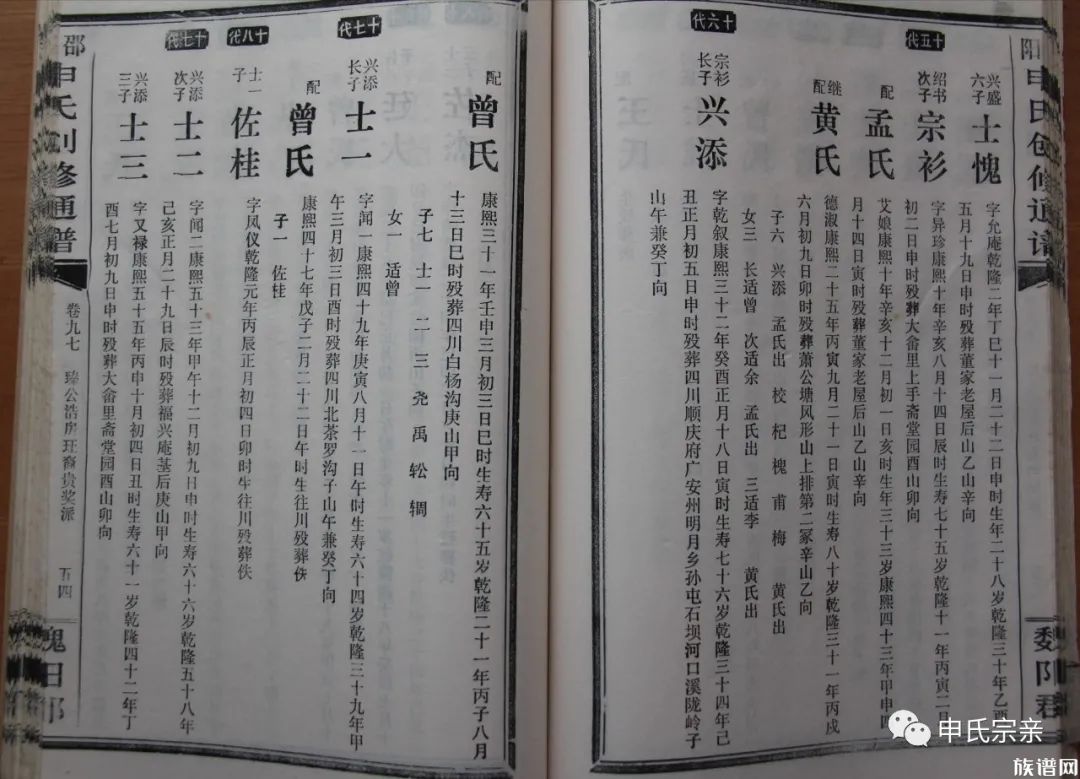 阳申氏创修通谱
魏阳君
兴盛六子 士愧 字允庵乾隆二年丁巳十一月二十二日申时生年二十八岁乾隆三十年乙酉
五月十九日申时殁葬董家老屋后山乙山辛向
十五代
绍书次子 宗衫 字异珍康熙十年辛亥八月十四日辰时生寿七十五岁乾隆十一年丙寅二月
初二日申时殁葬大畲里上手斋堂园酉山卯向
配 孟氏 艾娘康熙十年辛亥十二月初一日亥时生年三十三岁康熙四十三年甲申四
月十四日寅时殁葬董家老屋后山乙山辛向
继配 黄氏 德淑康熙二十五年丙寅九月二十一日寅时生寿八十岁乾隆三十一年丙戌
六月初九日卯时殁葬萧公塘风形山上排第二冢辛山乙向
子六 兴添 孟氏出 校 杞 槐 甫 梅 黄氏出
女三 长适曾 次适余 孟氏出 三适李 黄氏出
十六代
宗衫长子 兴添 字乾叙康熙三十二年癸酉正月十八日寅时生寿七十六岁乾隆三十四年己
丑正月初五日申时殁葬四川顺庆府广安州明月乡孙屯石坝河口溪陇岭子
山午兼癸丁向
配 曾氏 康熙三十一年壬申三月初三日巳时生寿六十五岁乾隆二十一年丙子八月
十三日巳时殁葬四川白杨沟庚山甲向
子七 士一 二 三 尧 禹 䡆 稠
女一 适曾
十七代
兴添长子 士一 字闻一康熙四十九年庚寅八月十一日午时生寿六十四岁乾隆三十九年甲
午三月初三日酉时殁葬四川北茶罗沟子山午兼癸丁向
配 曾氏 康熙四十七年戊子二月二十二日午时生往川殁葬佚
子一 佐桂
十八代
士一子 佐桂 字凤仪乾隆元年丙辰正月初四日卯时生往川殁葬佚
十七代
兴添次子 士二 字闻二康熙五十三年甲午十二月初九日申时生寿六十六岁乾隆五十八年
己亥正月二十九日辰时殁葬福兴庵基后庚山甲向
兴添三子 士三 字又禄康熙五十五年丙申十月初四日丑时生寿六十一岁乾隆四十二年丁
酉七月初九日申时殁葬大畲里斋堂园酉山卯向
邵申氏创修通谱
卷九七 臻公浩房珏裔贵奖派 五四
申氏宗亲
族谱网